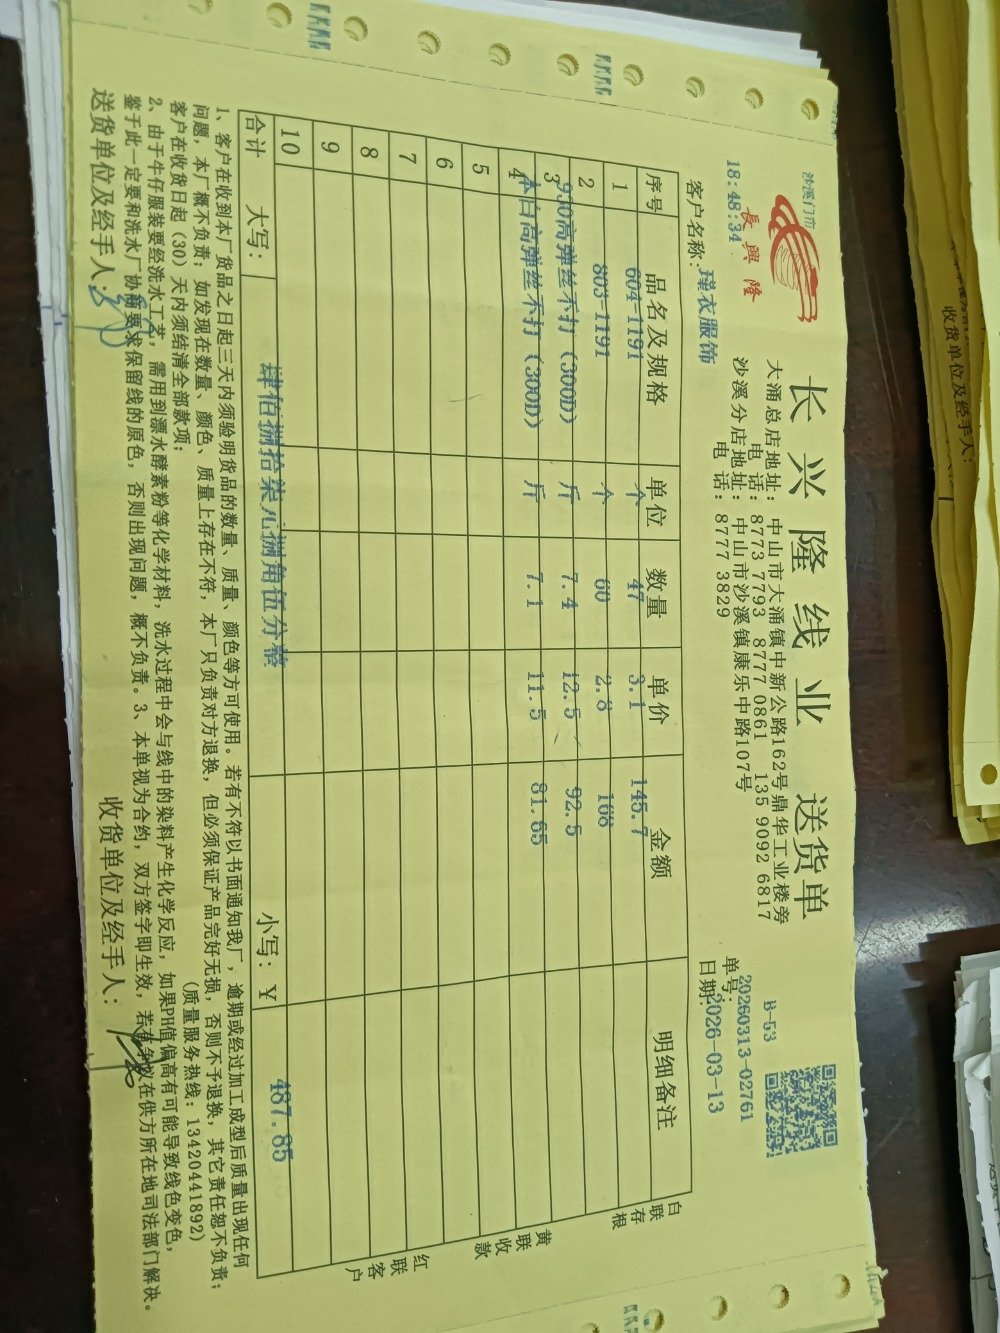 沙溪门市
長興隆
长兴隆线业 送货单
大涌总店地址: 中山市大涌镇中新公路162号鼎华工业楼旁
电 话: 8773 7793 8777 0861 135 9092 6817
沙溪分店地址: 中山市沙溪镇康乐中路107号
电 话: 8777 3829
18:48:34
B-53
单号: 20260313-02761
日期: 2026-03-13
客户名称: 瑧衣服饰
序号 品名及规格 单位 数量 单价 金额 明细备注
1 604-1191 个 47 3.1 145.7
2 803-1191 个 60 2.8 168
3 930高弹丝不打(300D) 斤 7.4 12.5 92.5
4 本白高弹丝不打(300D) 斤 7.1 11.5 81.65
5
6
7
8
9
10
合计 大写: 肆佰捌拾柒元捌角伍分整 小写: ¥ 487.85
白联存根
黄联收款
红联客户
1、客户在收到本厂货品之日起三天内须验明货品的数量、质量、颜色等方可使用。若有不符以书面通知我厂,逾期或经过加工成型后质量出现任何
问题,本厂概不负责;如发现在数量、颜色、质量上存在不符,本厂只负责对方退换,但必须保证产品完好无损,否则不予退换,其它责任恕不负责;
客户在收货日起(30)天内须结清全部款项; (质量服务热线:13420441892)
2、由于牛仔服装要经洗水工艺,需用到漂水酵素粉等化学材料,洗水过程中会与线中的染料产生化学反应,如果PH值偏高有可能导致线色变色,
鉴于此一定要和洗水厂协商要求保留线的原色,否则出现问题,概不负责。3、本单视为合约,双方签字即生效,若有争议在供方所在地司法部门解决。
送货单位及经手人:
收货单位及经手人:
收货单位及经手人: